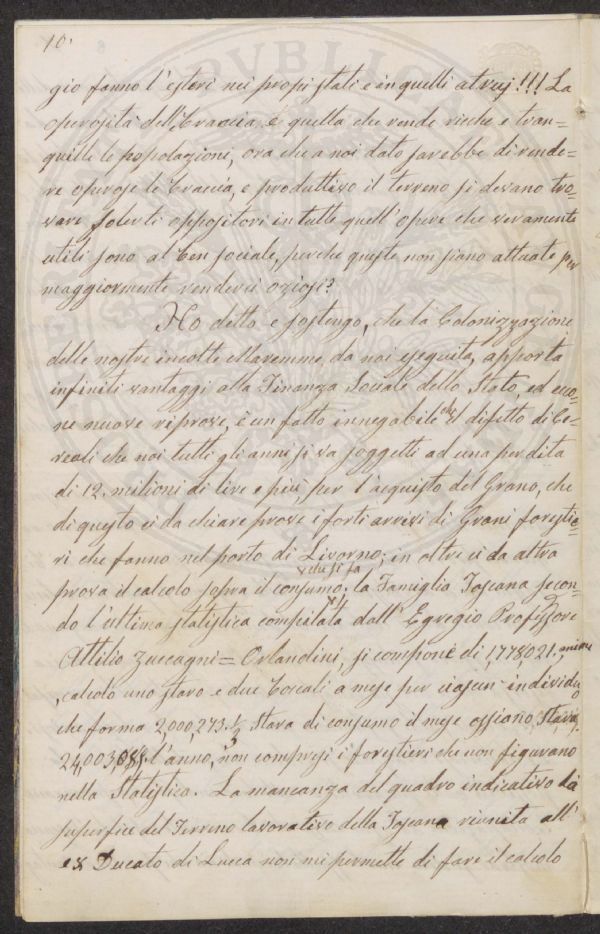 10.
gio fanno l'esteri nei propri stati e in quelli atruj!!! La
operosità dell, braccia, è quella che rende ricche e tran=
quille le popolazioni, ora che a noi dato sarebbe di rende=
re operose le braccia, e produttivo il terreno si devano tro=
vare solerti oppositori in tutte quell'opere che veramente
utili sono al ben sociale, perche queste non siano attuate per
maggiormente renderci oziosi?
Ho detto e sostengo, che la Colonizzazione
delle nostre incolte Maremme, da noi eseguita, apporta
infiniti vantaggi alla Finanza Sociale dello Stato, ed ecco=
ne nuove riprove, è un fatto innegabile che il difetto di Ce=
reali che noi tutti gli anni si va soggetti ad una perdita
di 12. milioni di lire e più, per l'acquisto del Grano, che
di questo ci da chiare prove i forti arrivi di Grani forestie=
ri che fanno nel porto di Livorno; in oltre ci da altra
prova il calcolo sopra il consumo, che si fa la Famiglia Toscana secon=
do l'ultima statistica compilata dall' Egregio Professore
Attilio Zuccagni= Orlandini, si compone di 1,778,021. anime
, calcolo uno staro e due Boccali a mese per ciascun individuo
che forma 2,000,273. ½ Stara di consumo il mese ossiano, Stara,
l'anno, non compresi i forestieri che non figurano
nella Statistica. La mancanza del quadro indicativo la
superfice del Terreno lavorativo della Toscana riunita all'
ex Ducato di Lucca non mi permette di fare il calcolo